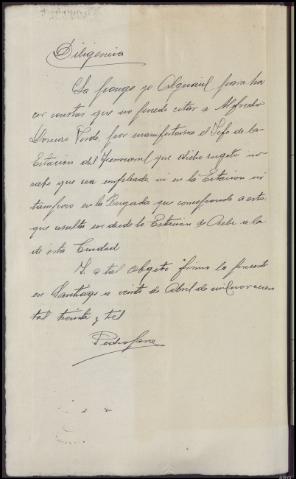 Diligencia
La pongo yo Alguacil para ha
cer constar que no puedo citar a Alfredo
Lorenzo Verde, por manifestarme el Jefe de la
Estación del Ferrocarril que dicho sugeto no
sabe que sea empleado ni en la Estación ni
tampoco en la Brigada que corresponde a esta
que resulta en desde la Estación de a la
de esta Ciudad
Y a tal objeto firmo la presente
en Santiago a veinte de Abril de mil novecien
tos treinta y tres
Pedro